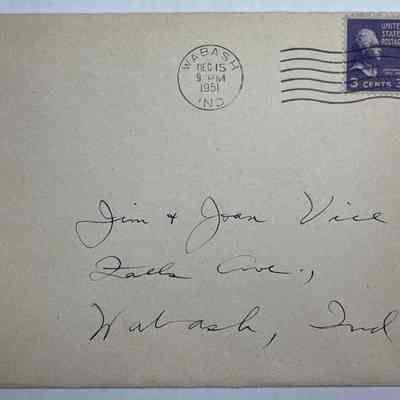 WABASH
DEC 15
9 PM
1951
IND.
UNITED
STATES
POSTAGE
3 CENTS 3
Jim & Joan Vice
Falls Ave.,
Wabash, Ind